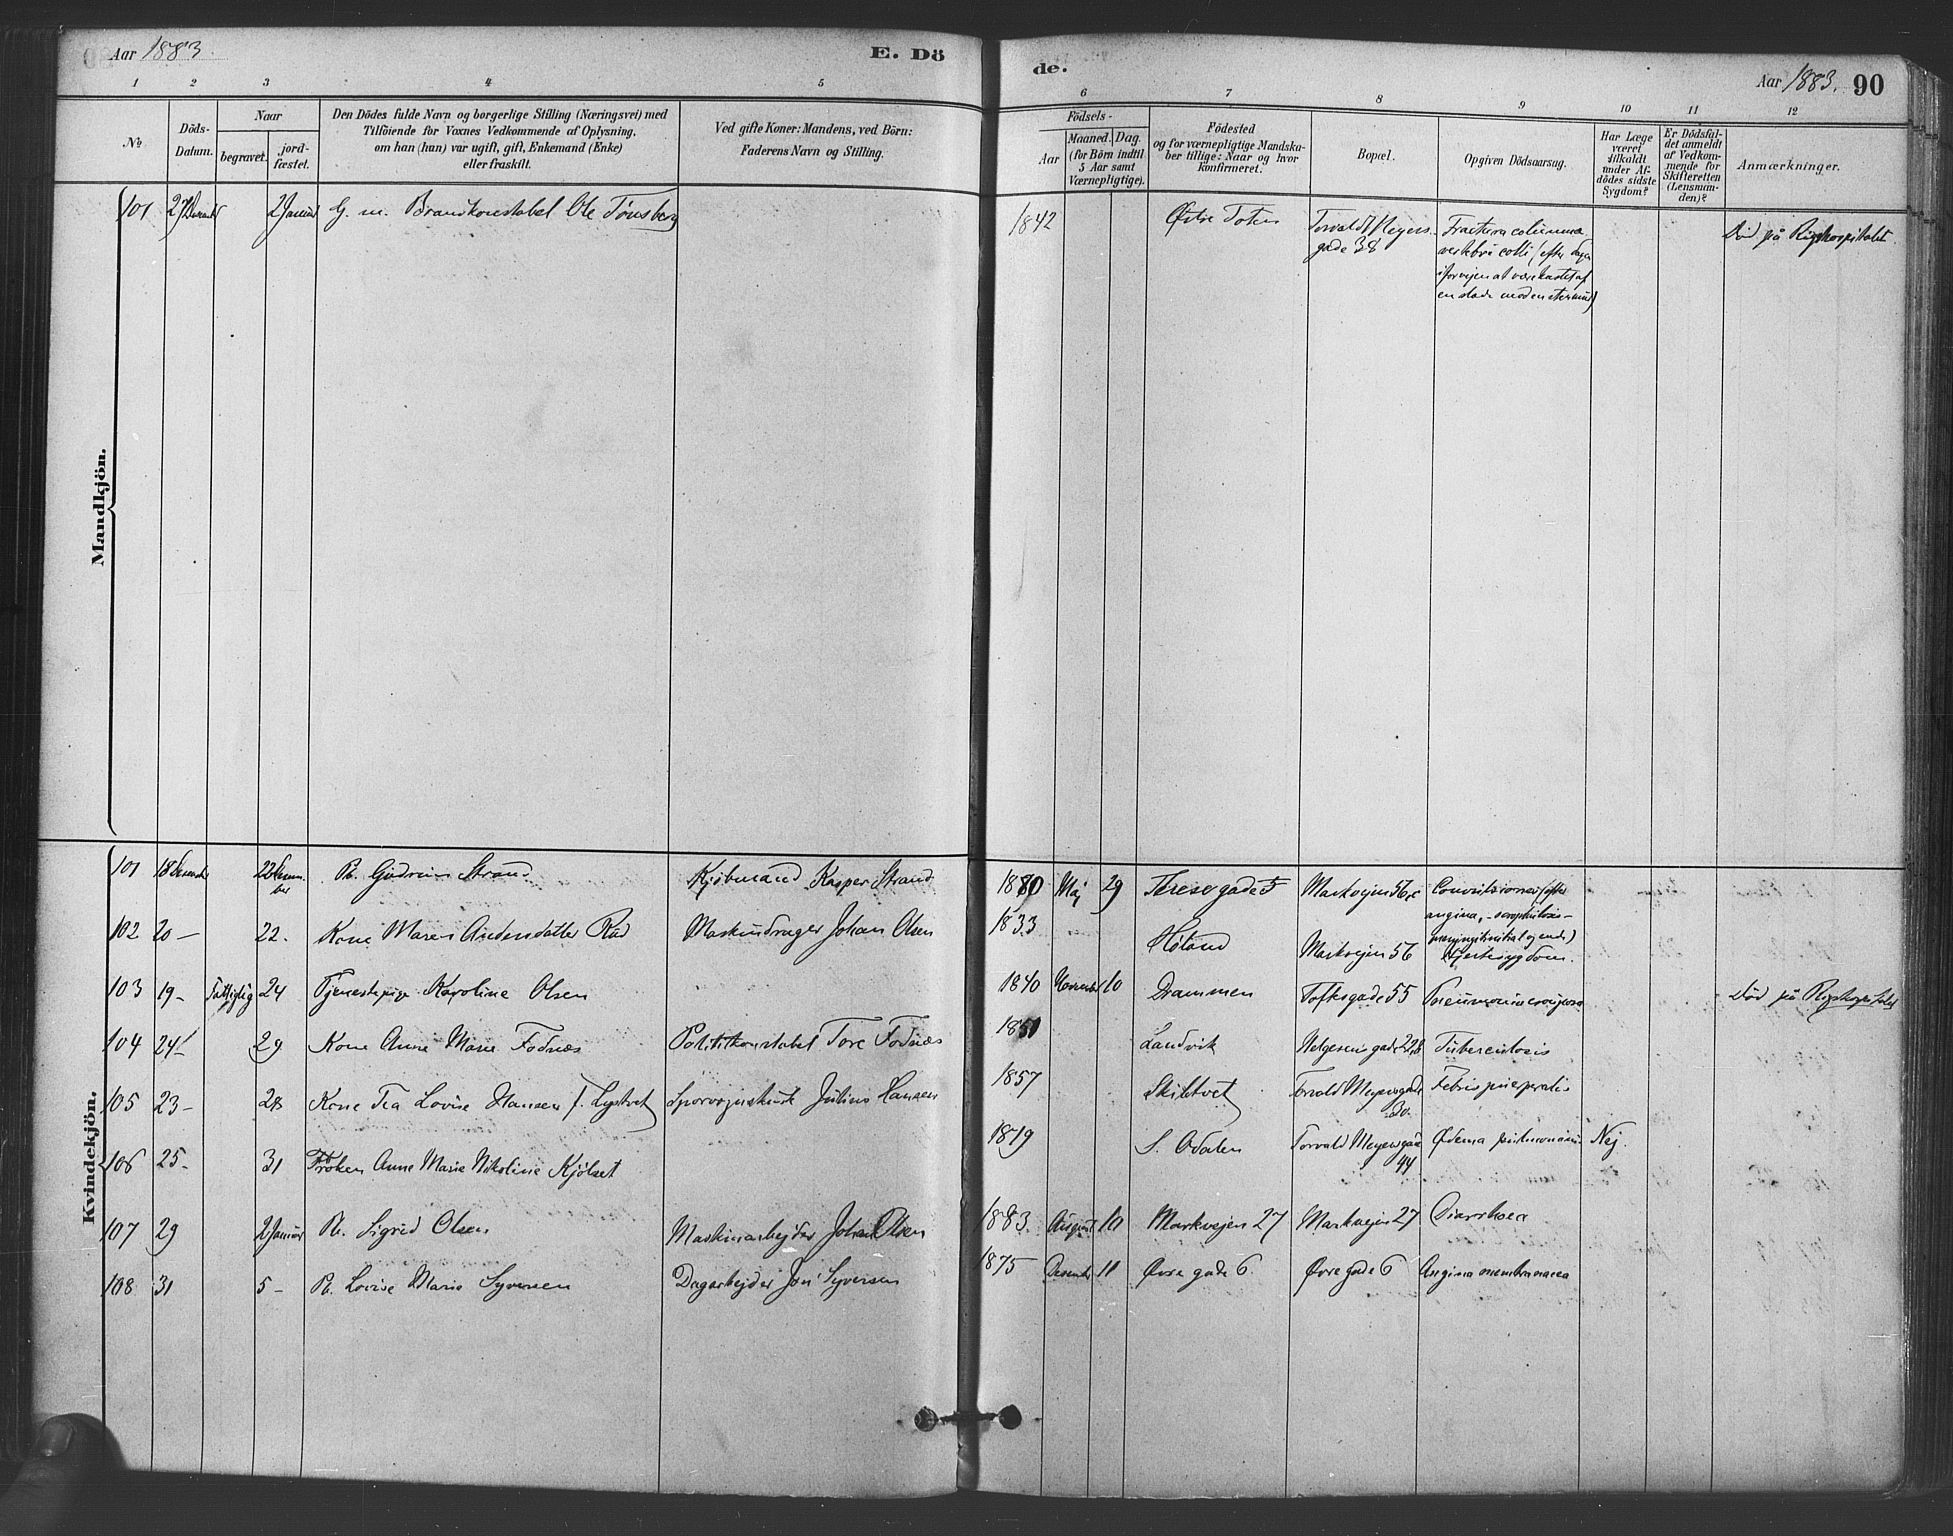 Aar 1883.
E. Dö
de.
Aar 1883. 90
1 2 3 4 5 6 7 8 9 10 11 12
№
Döds-
Datum.
Naar
begravet.
jord-
fæstet.
Den Dödes fulde Navn og borgerlige Stilling (Næringsvei) med
Tilföiende for Voxnes Vedkommende af Oplysning,
om han (hun) var ugift, gift, Enkemand (Enke)
eller fraskilt.
Ved gifte Koner: Mandens, ved Börn:
Faderens Navn og Stilling.
Födsels-
Aar
Maaned. Dag.
(for Börn indtil
5 Aar samt
Værnepligtige).
Födested
og for værnepligtige Mandska-
ber tillige: Naar og hvor
konfirmeret.
Bopæl.
Opgiven Dödsaarsag.
Har Læge
været
tilkaldt
under Af-
dödes sidste
Sygdom?
Er Dödsfal-
det anmeldt
af Vedkom-
mende for
Skifteretten
(Lensman-
den)?
Anmærkninger.
Mandkjön.
101 27 Decembr 2 Januar G. m. Brandkonstabel Ole Tønsberg 1842 Østre Toten Torvald Meyers- Fractura columna Død på Rigshospitalet.
gade 38 vertebræ colli (efter dagen
iforvejen at være kastet af
en slæde mod en stenmur)
Kvindekjön.
101 18 Decembr 22 Decem- Pb. Gudrun Strand Kjøbmand Kasper Strand 1880 Maj 29 Theresegade 5 Markvejen 56c Convulsiones (efter
ber
angina, - scrophulosis -
102 20 — 22. Kone Maren Andersdatter Rud Maskindrager Johan Olsen 1833 Høland Markvejen 56 Hjertesygdom.
103 19 - Fattiglig 24 Tjenestepige Karoline Olsen 1840 November 10 Drammen Toftesgade 55 Pneumonia Død på Rigshospitalet
104 24 - 29 Kone Anne Marie Fodnæs Politikonstabel Tore Fodnæs 1851 Landvik Helgesens gade Tuberculosis
105 23 - 28 Kone Tea Lovise Hansen f. Sporvognskusk Julius Hansen 1857 Skibtvet Torvald Meyersgade Febris puerperalis
30.
106 25 - 31 Frøken Anne Marie Nikoline Kjölset 1819 S. Odalen Torvald Meyersgade Ødema pulmonum Nej.
44
107 29 2 Januar Pb. Sigrid Olsen Maskinarbejder Johan Olsen 1883 August 10 Markvejen 27 Markvejen 27 Diarrhoea
108 31 5 - Pb. Lovise Marie Syversen Dagarbejder Syversen 1875 Decembr 11 Øvre gade 6 Øvre gade 6 Angina membranacea